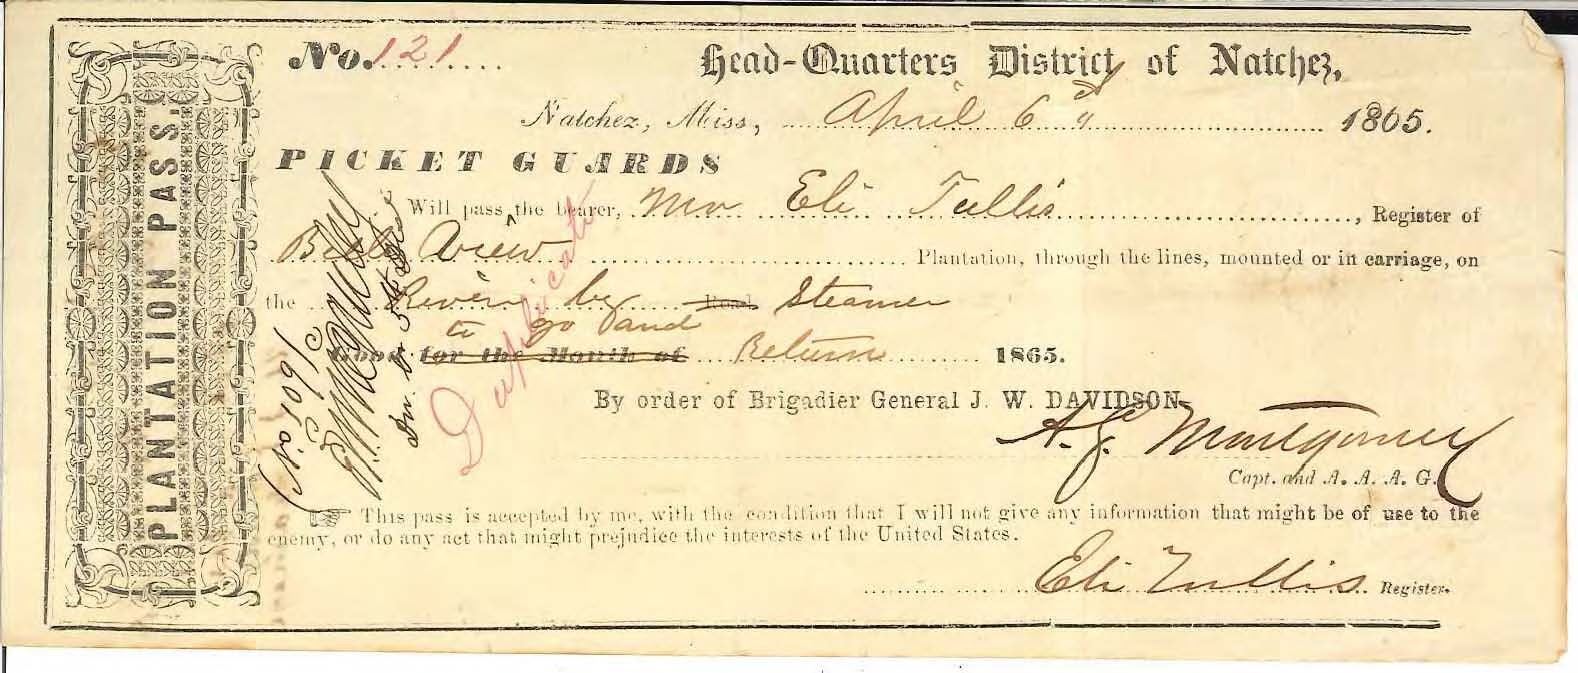 PLANTATION PASS.
No. 121
Head-Quarters District of Natchez,
Natchez, Miss, April 6 1865.
PICKET GUARDS
Will pass ^ the bearer, Mr Eli Tullis, Register of
Belle View Plantation, through the lines, mounted or in carriage, on
the River by Road Steamer
to go and
Good for the Month of Return 1865.
By order of Brigadier General J. W. DAVIDSON
A. G. Montgomery
Capt. and A. A. A. G.
This pass is accepted by me, with the condition that I will not give any information that might be of use to the
enemy, or do any act that might prejudice the interests of the United States.
Eli Tullis Register.
Duplicate